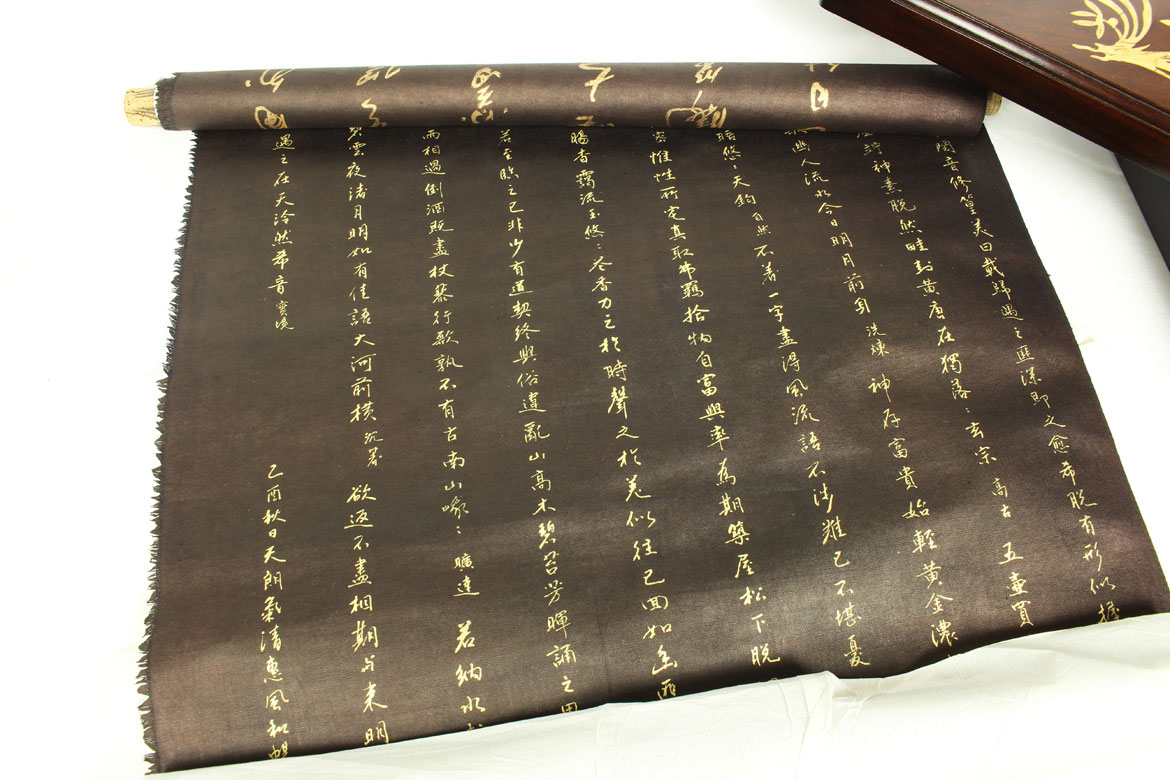 閱音修篁美曰載歸遇之匪深即之愈希脫有形似握
神素脫然畦封黄唐在獨落：玄宗 高古 玉壺買
與人流水今日明月前身 洗煉 神存富貴始輕黄金濃
悠：天鈞 自然 不着一字盡得風流語不涉難已不堪憂
惟性所宅真取弗羈拾物自富與率為期築屋松下脫
香靄流玉悠：花香力之於時聲之於羌似往已回如幽匪
若至臨之已非少有道契終與俗違亂山高木碧苔芳暉誦之思
而相過倒酒既盡杖藜行歌孰不有古南山峨：曠達 若納水
雲夜渚月明如有佳語大河前橫 沉著 欲返不盡相期与來明
遇之在天泠然希音 實境
乙酉秋日天朗氣清惠風和暢